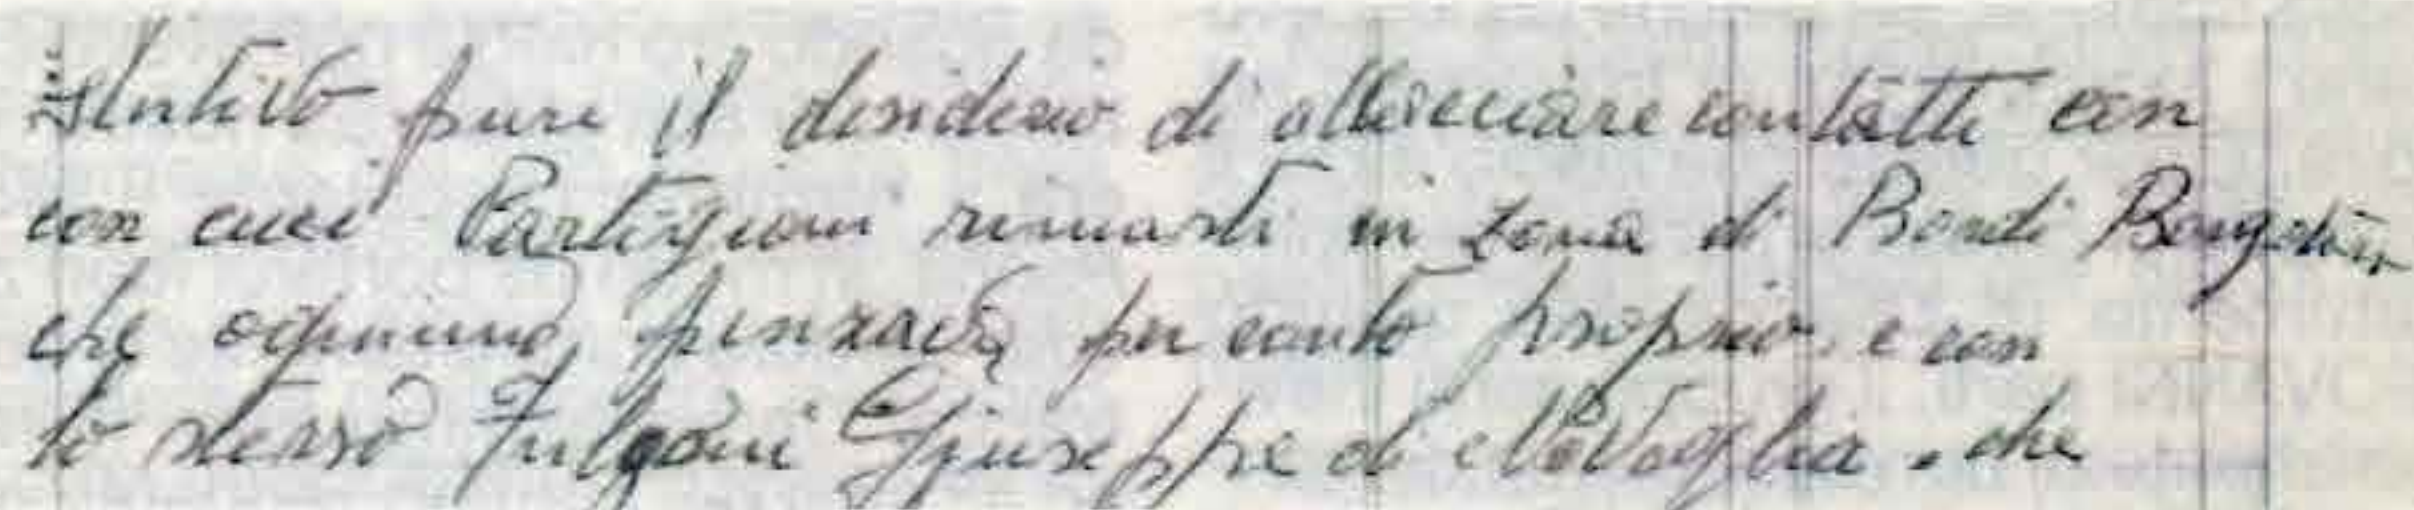 sentito pure il desiderio di allacciare contatti con
con Partigiani rimasti in zona di Bondi
che ognuno pensava per conto proprio, e con
lo stesso Fulgoni Giuseppe di che